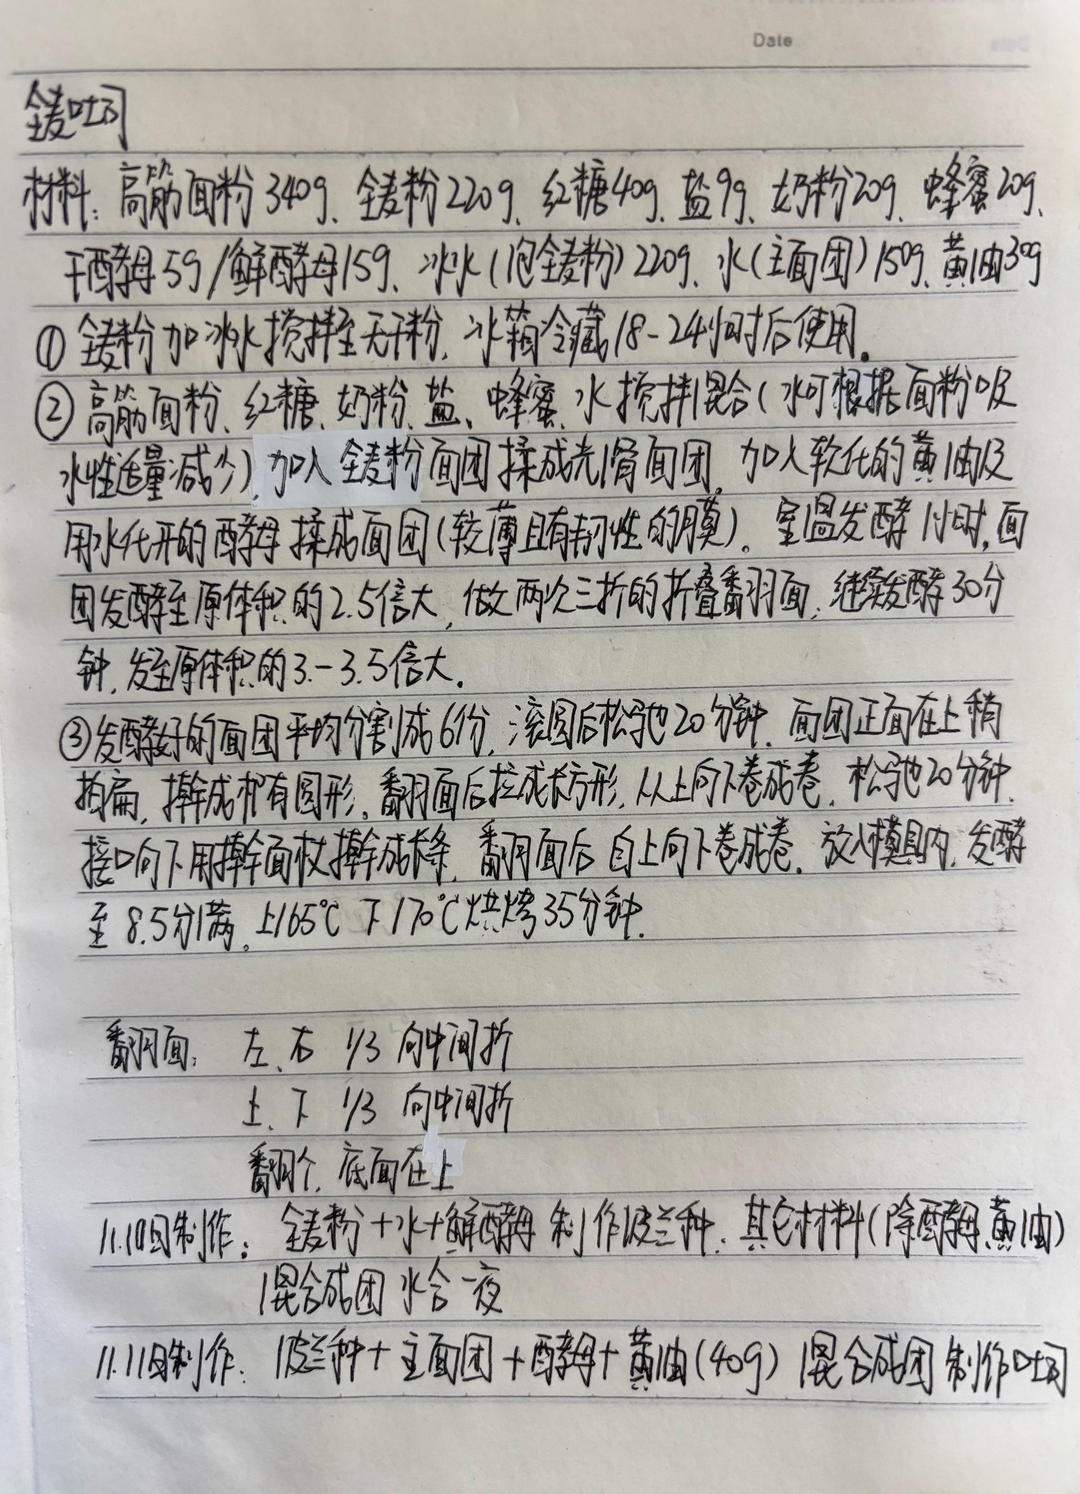 Date
全麦吐司
材料：高筋面粉340g、全麦粉220g、红糖40g、盐9g、奶粉20g、蜂蜜20g、
干酵母5g/鲜酵母15g、冰水(泡全麦粉)220g、水(主面团)150g、黄油30g
① 全麦粉加冰水搅拌至无干粉，冰箱冷藏18-24小时后使用。
② 高筋面粉、红糖、奶粉、盐、蜂蜜、水搅拌混合(水可根据面粉吸
水性适量减少)，加入全麦粉面团揉成光滑面团，加入软化的黄油及
用水化开的酵母揉成面团(较薄且有韧性的膜)。室温发酵1小时，面
团发酵至原体积的2.5倍大，做两次三折的折叠翻面，继续发酵30分
钟，发至原体积的3-3.5倍大。
③发酵好的面团平均分割成6份，滚圆后松弛20分钟，面团正面在上稍
拍扁，擀成椭圆形，翻面后拉成长方形，从上向下卷成卷，松弛20分钟，
接口向下用擀面杖擀成长条，翻面后自上向下卷成卷，放入模具内，发酵
至8.5分满，上165℃下170℃烘烤35分钟.
翻面：左、右 1/3 向中间折
上、下 1/3 向中间折
翻个，底面在上
11.10日制作：全麦粉+水+鲜酵母制作波兰种，其它材料(除酵母、黄油)
混合成团水合一夜
11.11日制作：波兰种+主面团+酵母+黄油(40g)混合成团制作吐司